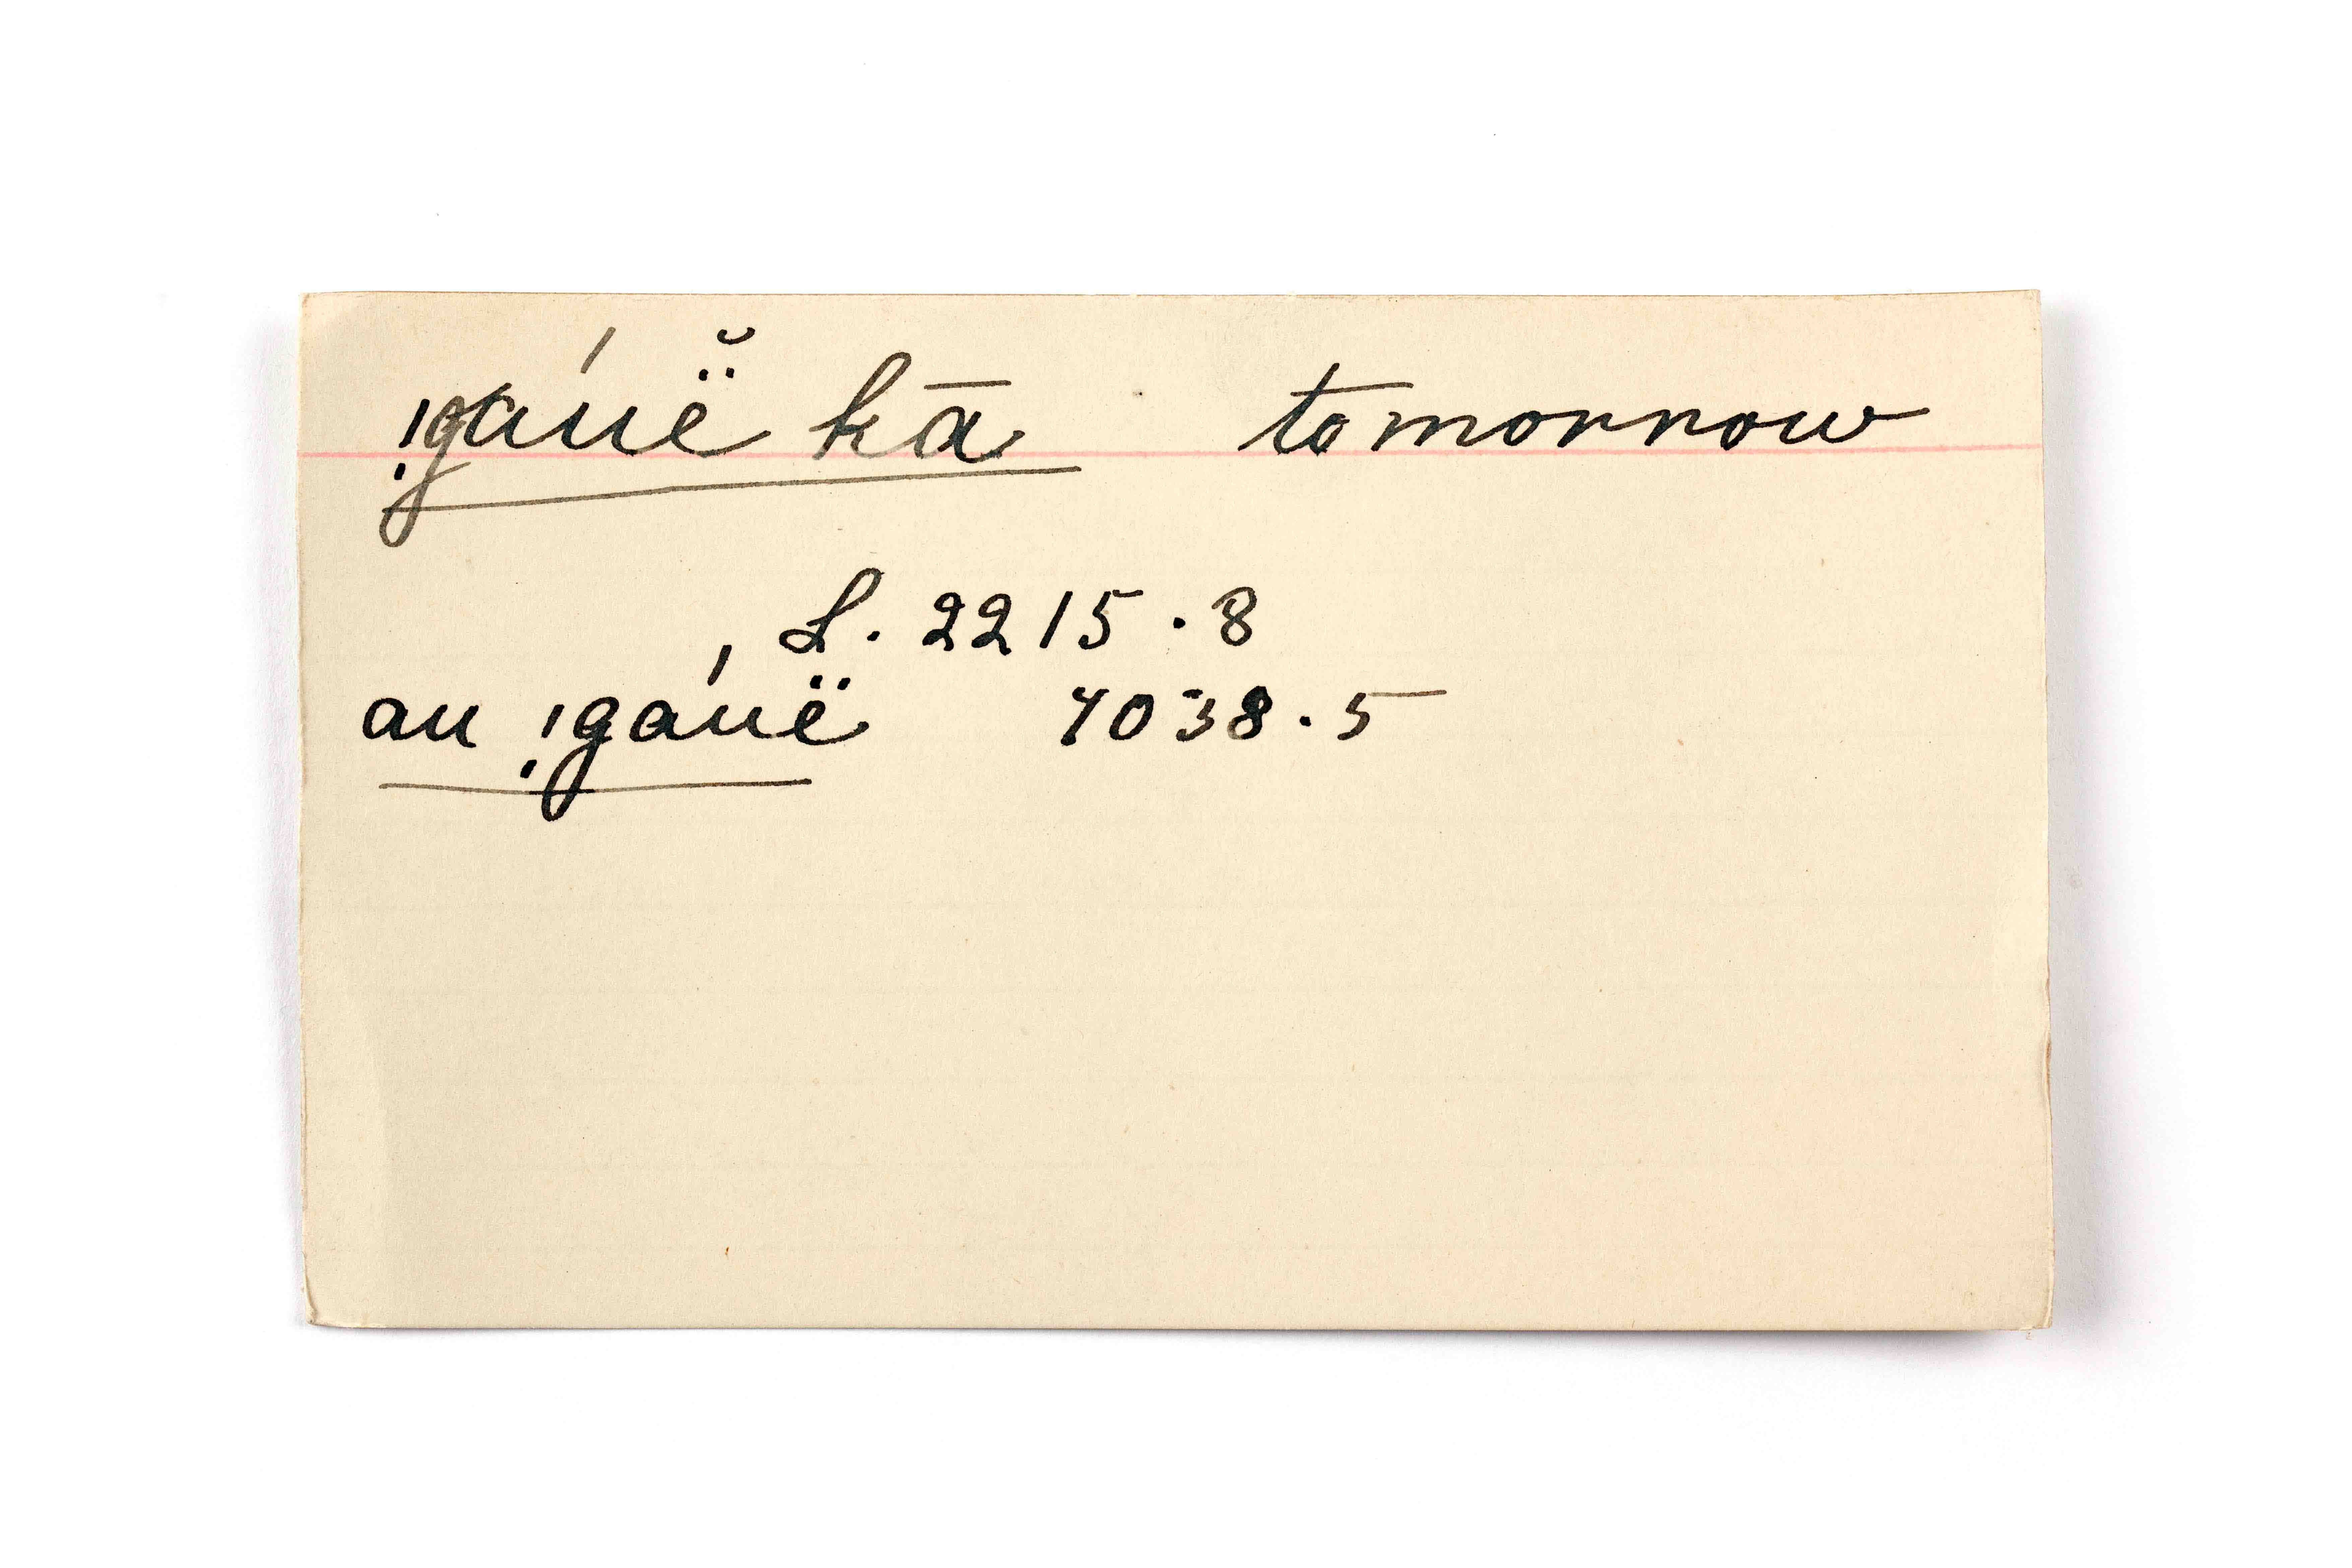 !gáuë̆ kā tomorrow
L. 2215.8
au !gáuë 4038.5